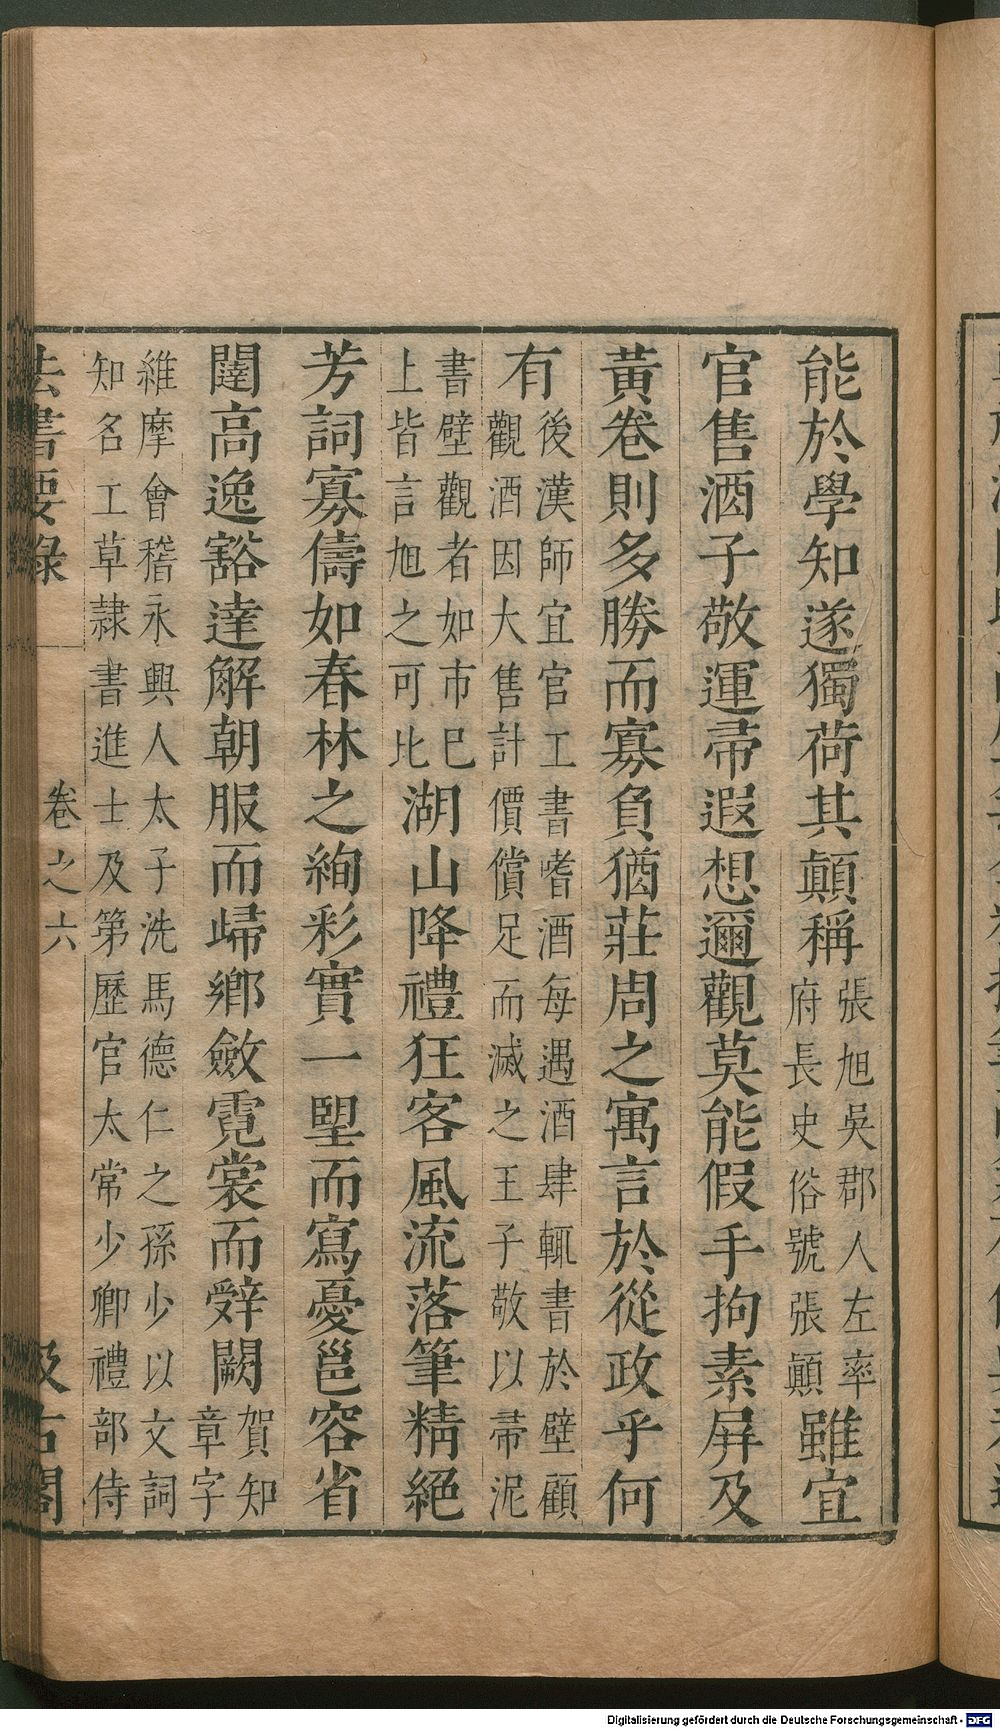 能於學知遂獨荷其顛稱張旭吳郡人左率府長史俗號張顛雖宜
官售酒子敬運帚遐想邇觀莫能假手拘素屏及
黃卷則多勝而寡負猶莊周之寓言於從政乎何
有後漢師宜官工書嗜酒每遇酒肆輒書於壁顧觀酒因大售計價償足而滅之王子敬以帚泥
書壁觀者如市巳上皆言旭之可比湖山降禮狂客風流落筆精絕
芳詞寡儔如春林之絢彩實一朢而寫憂邕容省
闥高逸豁達解朝服而歸鄉斂霓裳而辭闕賀知章字
維摩會稽永興人太子洗馬德仁之孫少以文詞知名工草隸書進士及第歷官太常少卿禮部侍
法書要錄 卷之六 汲古閣
Digitalisierung gefördert durch die Deutsche Forschungsgemeinschaft - DFG